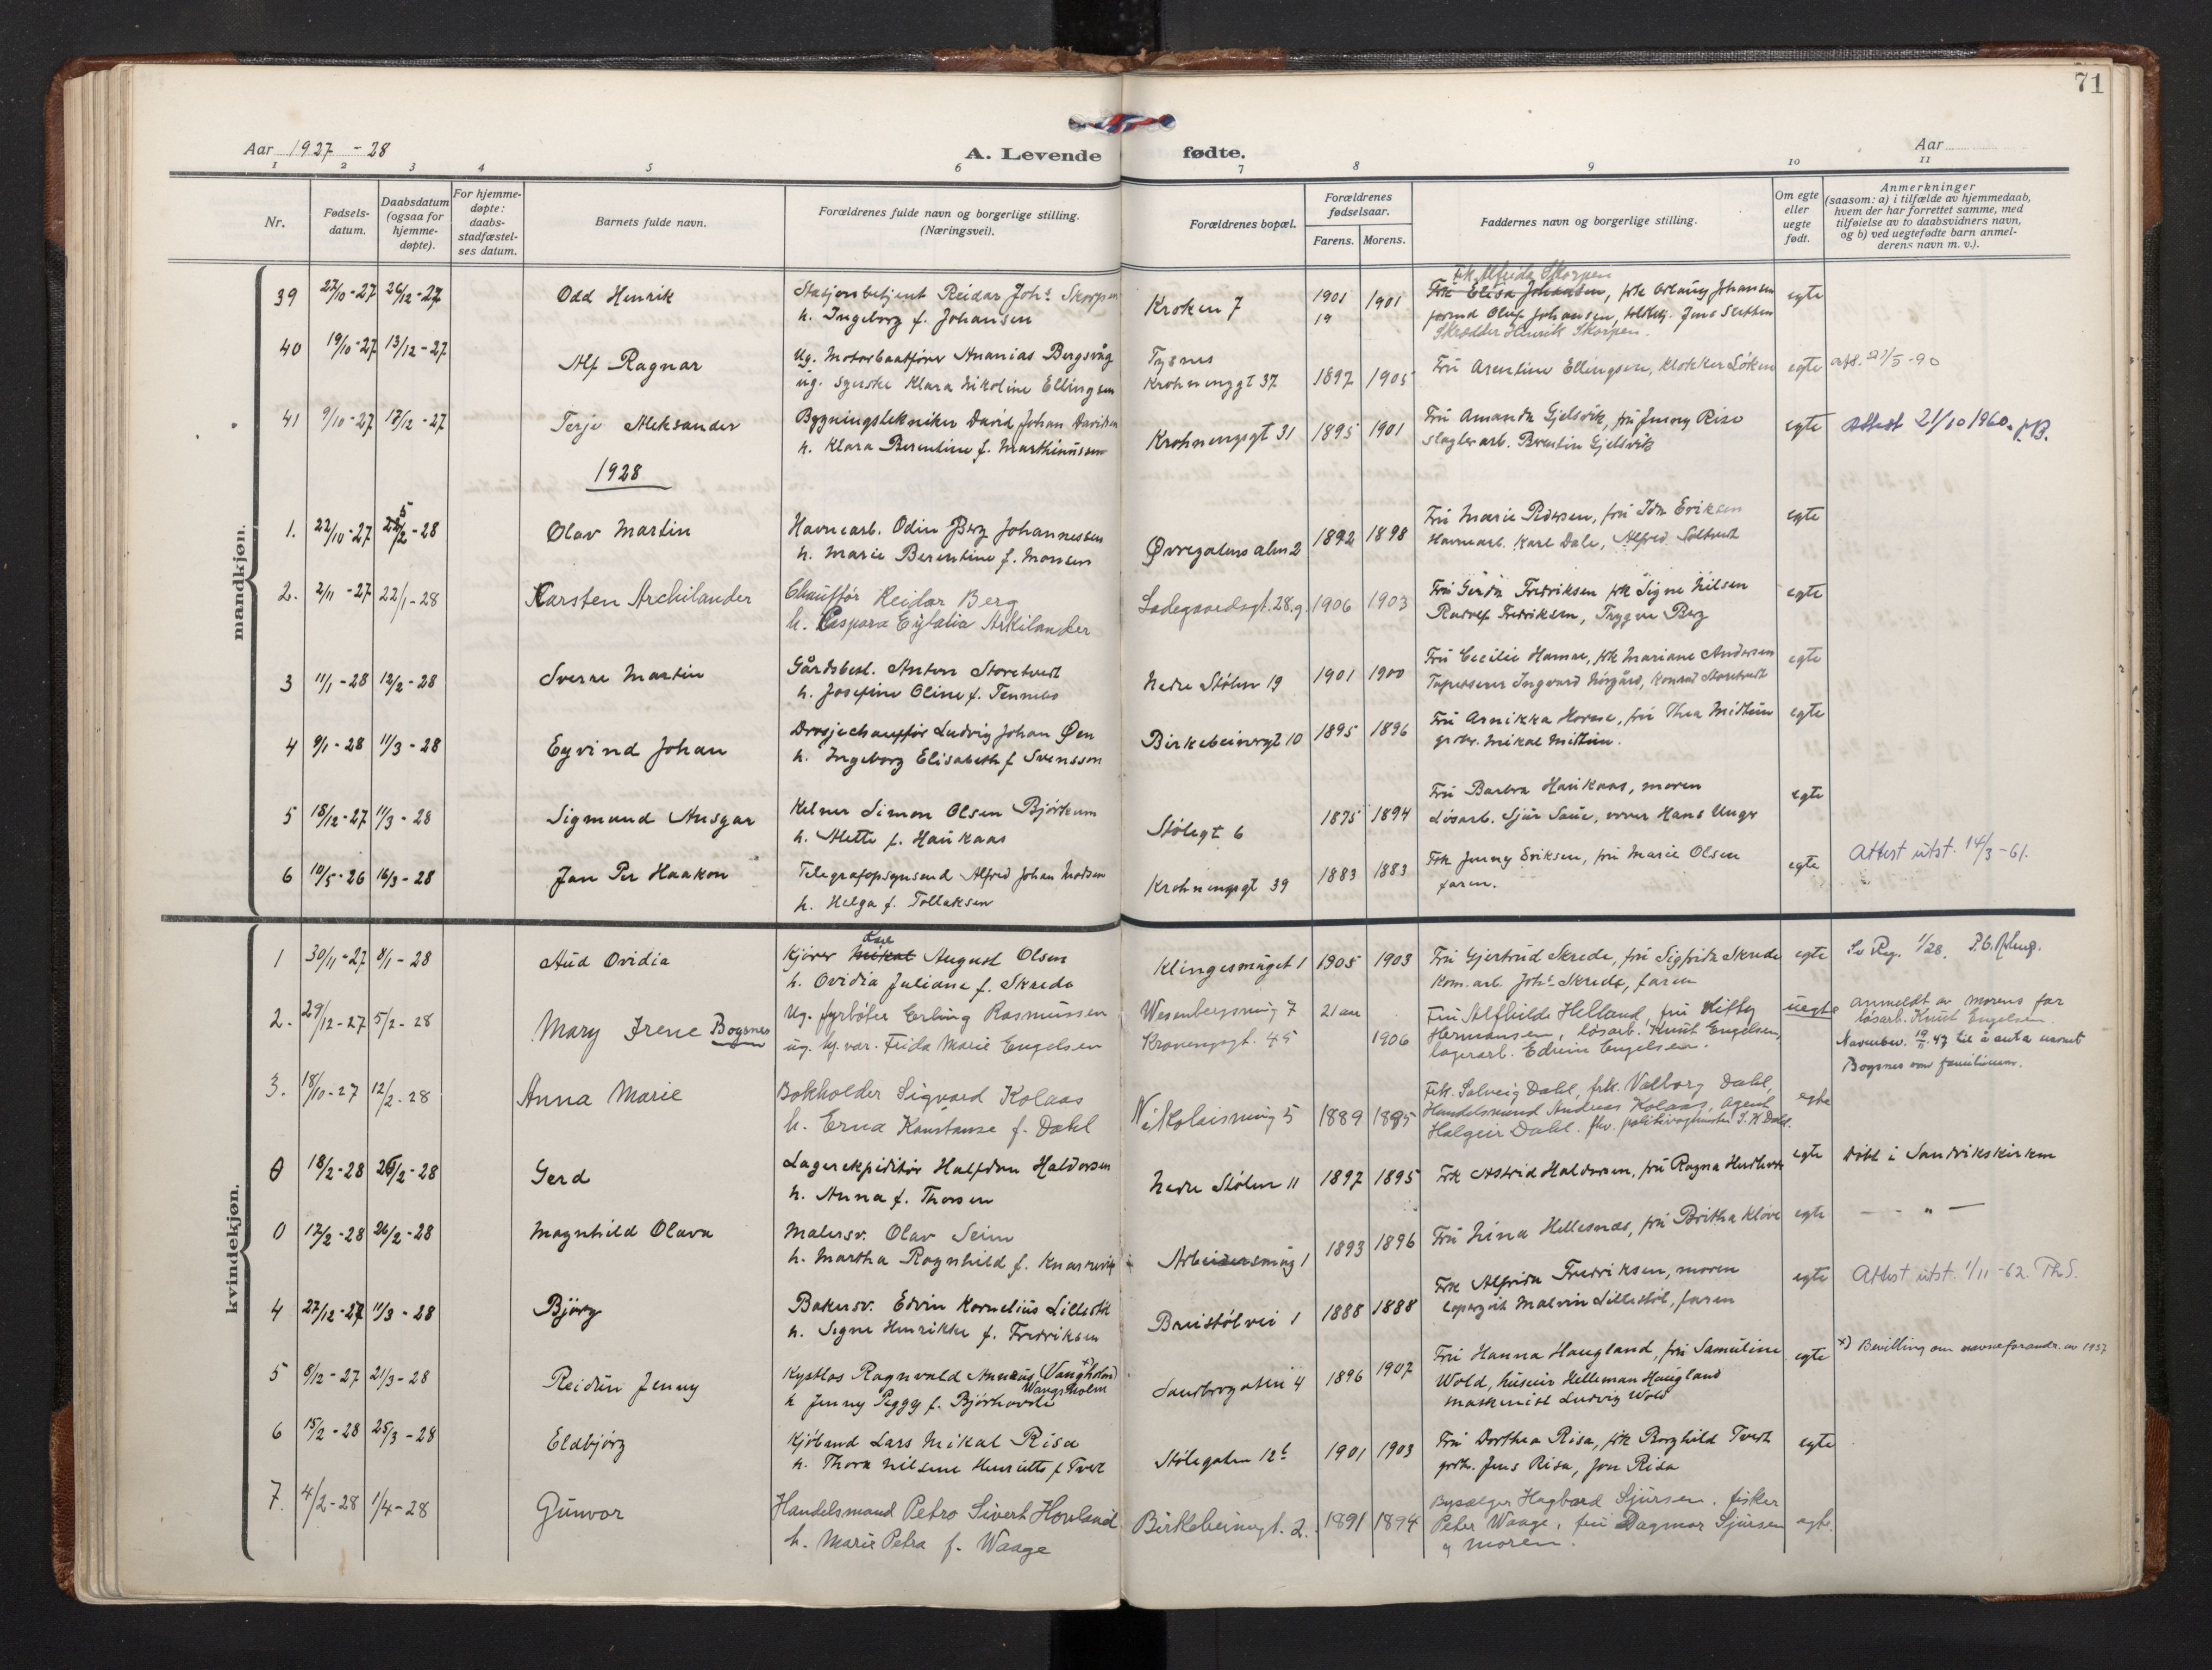 71
Aar 1927 - 28
A. Levende fødte.
Aar
1 2 3 4 5 6 7 8 9 10 11
Nr.
Fødsels-datum.
Daabsdatum (ogsaa for hjemme-døpte).
For hjemme-døpte: daabs-stadfæstel-ses datum.
Barnets fulde navn.
Forældrenes fulde navn og borgerlige stilling. (Næringsvei).
Forældrenes bopæl.
Forældrenes fødselsaar.
Farens. Morens.
Faddernes navn og borgerlige stilling.
Om egte eller uegte født.
Anmerkninger
(saasom: a) i tilfælde av hjemmedaab, hvem der har forrettet samme, med tilføielse av to daabsvidners navn, og b) ved uegtefødte barn anmel-derens navn m. v.).
mandkjøn.
39 27/10-27 26/12-27 Odd Henrik Stasjonsbetjent Reidar Johs Skorpen Kroken 7 1901 1901 Frk Elisa Johansen, frk Aslaug Johansen egte
h. Ingeborg f. Johansen 19 formd Oluf Johansen, Jens Sletten
Skrædder Henrik Skorpen.
40 19/10-27 13/12-27 Alf Ragnar Ug. Motorbaatfører Ananias Bergsvåg Tysnes Fru Arentine Ellingsen, Klokker Løken egte att. 21/5-90
ug. syerske Klara Nikoline Ellingsen Krohnenggt 37 1897 1905
41 9/10-27 17/12-27 Terje Aleksander Bygningstekniker David Johan Davidsen Krohnengsgt 31 1895 1901 Fru Amanda Gjelsvik, fru Jenny Riso egte Attest 21/10 1960. JB.
h. Klara Berentine f. Marthinussen slagterarb. Berntin Gjelsvik
1928
1. 22/10-27 25/2-28 Olav Martin Havnearb. Odin Berg Johannessen Øvregatens alm 2 1892 1898 Fru Marie Pedersen, fru Ida Eriksen egte
h. Marie Berentine f. Monsen Havnearb. Karl Dale, Alfred Soltvedt
2. 2/11-27 22/1-28 Karsten Archilander Chauffør Reidar Berg Ladegaardsgt. 28.g. 1906 1903 Fru Gerda Fredriksen frk Signe Nilsen egte
h. Caspara Eylalia Arkilander Radolf Fredriksen, Trygve Berg
3 11/1-28 12/2-28 Sverre Martin Gårdsbest. Anton Storetvedt Nedre Stølen 19 1901 1900 Fru Cecilie Hamre, frk Mariane Andersen egte
h. Josefine Oline f. Tennebø Tapetserer Ingvard Norgård, Konrad Storetvedt
4 9/1-28 11/3-28 Eyvind Johan Drosjechauffør Ludvig Johan Øen Birkebeinergt 10 1895 1896 Fru Arnikka Horne, fru Thea Midttun egte
h. Ingeborg Elisabeth f Svensson Mikal Midttun.
5 18/12-27 11/3-28 Sigmund Ansgar Kelner Simon Olsen Bjørkum Stølegt 6 1875 1894 Fru Barbra Haukaas, moren egte
h. Mette f. Haukaas Løsarb. Sjur Saue, Hans Unger
6 10/5-26 16/3-28 Jan Per Haakon Telegrafopsynsmd Alfred Johan Madsen Krohnengsgt 39 1883 1883 Frk Jenny Eriksen, fru Marie Olsen egte Attest utst. 14/3-61.
h. Helga f. Tollaksen faren.
kvindekjøn.
1 30/11-27 8/1-28 Aud Ovidia Kjører Karl Mikal August Olsen Klingesmuget 1 1905 1903 Fru Gjertrud Skrede, fru Sigfrida Skrede egte Se Reg. 1/28.
h. Ovidia Juliane f. Skrede Kom. arb. Johs Skrede, faren
2. 29/12-27 5/2-28 Mary Irene Bogsnes Ug. fyrbøter Erling Rasmussen Wesenbergsmug 7 21 aar Fru Alfhilde Helland, fru Kitty uegte anmeldt av morens far
ug. hj.var. Frida Marie Engelsen Kronengsgt. 45 1906 Hermansen, løsarb. Knut Engelsen, løsarb. Knut Engelsen
lagerarb. Edvin Engelsen. Navnebev. 10/11 47 til å anta navnet
Bogsnes som familienavn.
3. 18/10-27 12/2-28 Anna Marie Bokholder Sigvard Kolaas Nikolaismug 5 1889 1895 Frk. Solveig Dahl, frk. Valborg Dahl, egte
h. Erna Konstanse f. Dahl Handelsmand Andreas Kolaas, agent
Holgeir Dahl.
0 18/2-28 26/2-28 Gerd Lagerekspeditør Halfdan Haldorsen Nedre Stølen 11 1897 1895 Frk Astrid Haldorsen, fru Ragna egte Døbt i Sandvikskirken
h. Anna f. Thorsen
0 17/2-28 26/2-28 Magnhild Olava Malersv. Olav Seim Arbeidersmug 1 1893 1896 Fru Nina Hellesnæs, fru Britha Kløve egte — " —
h. Martha Ragnhild f. Knarrevik
4 27/12-27 11/3-28 Bjørg Bakersv. Edvin Kornelius Lillestøl Breistølvei 1 1888 1888 Frk Alfrida Fredriksen, moren egte Attest utst. 1/11-62. Th.S.
h. Signe Henrikke f. Fredriksen Malvin Lillestøl, faren
5 8/12-27 21/3-28 Reidun Jenny Kystlos Ragnvald Annæus (Vangholm) x) Sandbrogaten 4 1896 1907 Fru Hanna Haugland, fru Samuline egte x) Bevilling om navneforandr. av 1937
Wangsholm
h Jenny Peggy f. Bjørkhovde Wold, huseier Helleman Haugland
maskinist Ludvig Wold
6 15/2-28 25/3-28 Eldbjørg Kjøbmd Lars Mikal Risa Stølegaten 12b 1901 1903 Fru Dorthea Risa, frk Borghild Tvedt egte
h. Thora Nilsine Henriette f Tvedt Jens Risa, Jon Risa
7. 4/2-28 1/4-28 Gunvor Handelsmand Petro Sivert Hovland Birkebeinergt. 2. 1891 1894 Bysælger Hagbard Sjursen. fisker egte
h. Marie Petra f. Waage Peter Waage, fru Dagmar Sjursen
og moren.